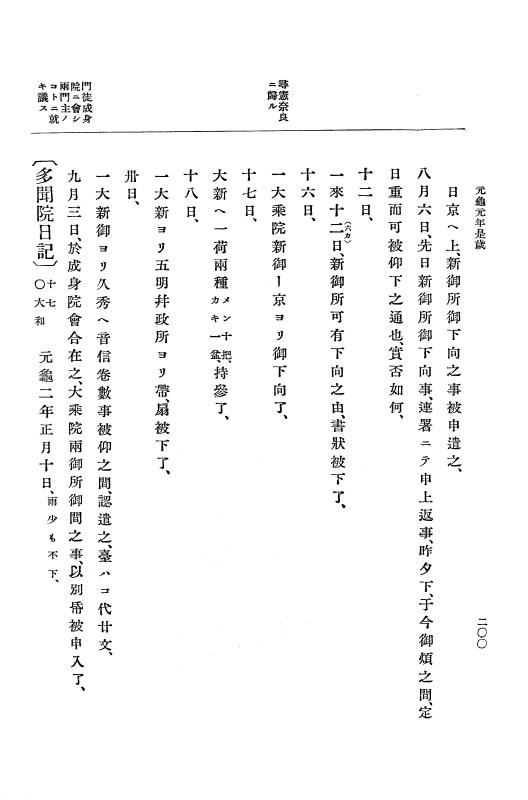 元龜元年是歲
二〇〇
尋憲奈良
ニ歸ル
門徒成身
院ニ會シ
兩門主ノ
コトニ就
キ議ス
日京へ上、新御所御下向之事被申遣之、
八月六日、先日新御所御下向事、連署ニテ申上返事、昨夕下、于今御煩之間、定
日重而可被仰下之通也、實否如何、
十二日、
一來十二日、新御所可有下向之由、書狀被下了、
(六カ)
十六日、
一大乘院新御ー京ヨリ御下向了、
十七日、
大新へ一荷兩種メン十把、カキ一盆、持參了、
十八日、
一大新ヨリ五明幷政所ヨリ帶、扇被下了、
卅日、
一大新御ヨリ久秀へ音信卷數事被仰之間、認遣之、臺ハコ代廿文、
九月三日、於成身院會合在之、大乘院兩御所御間之事、以別帋被申入了、
〔多聞院日記〕十七〇大和 元龜二年正月十日、雨少も不下、